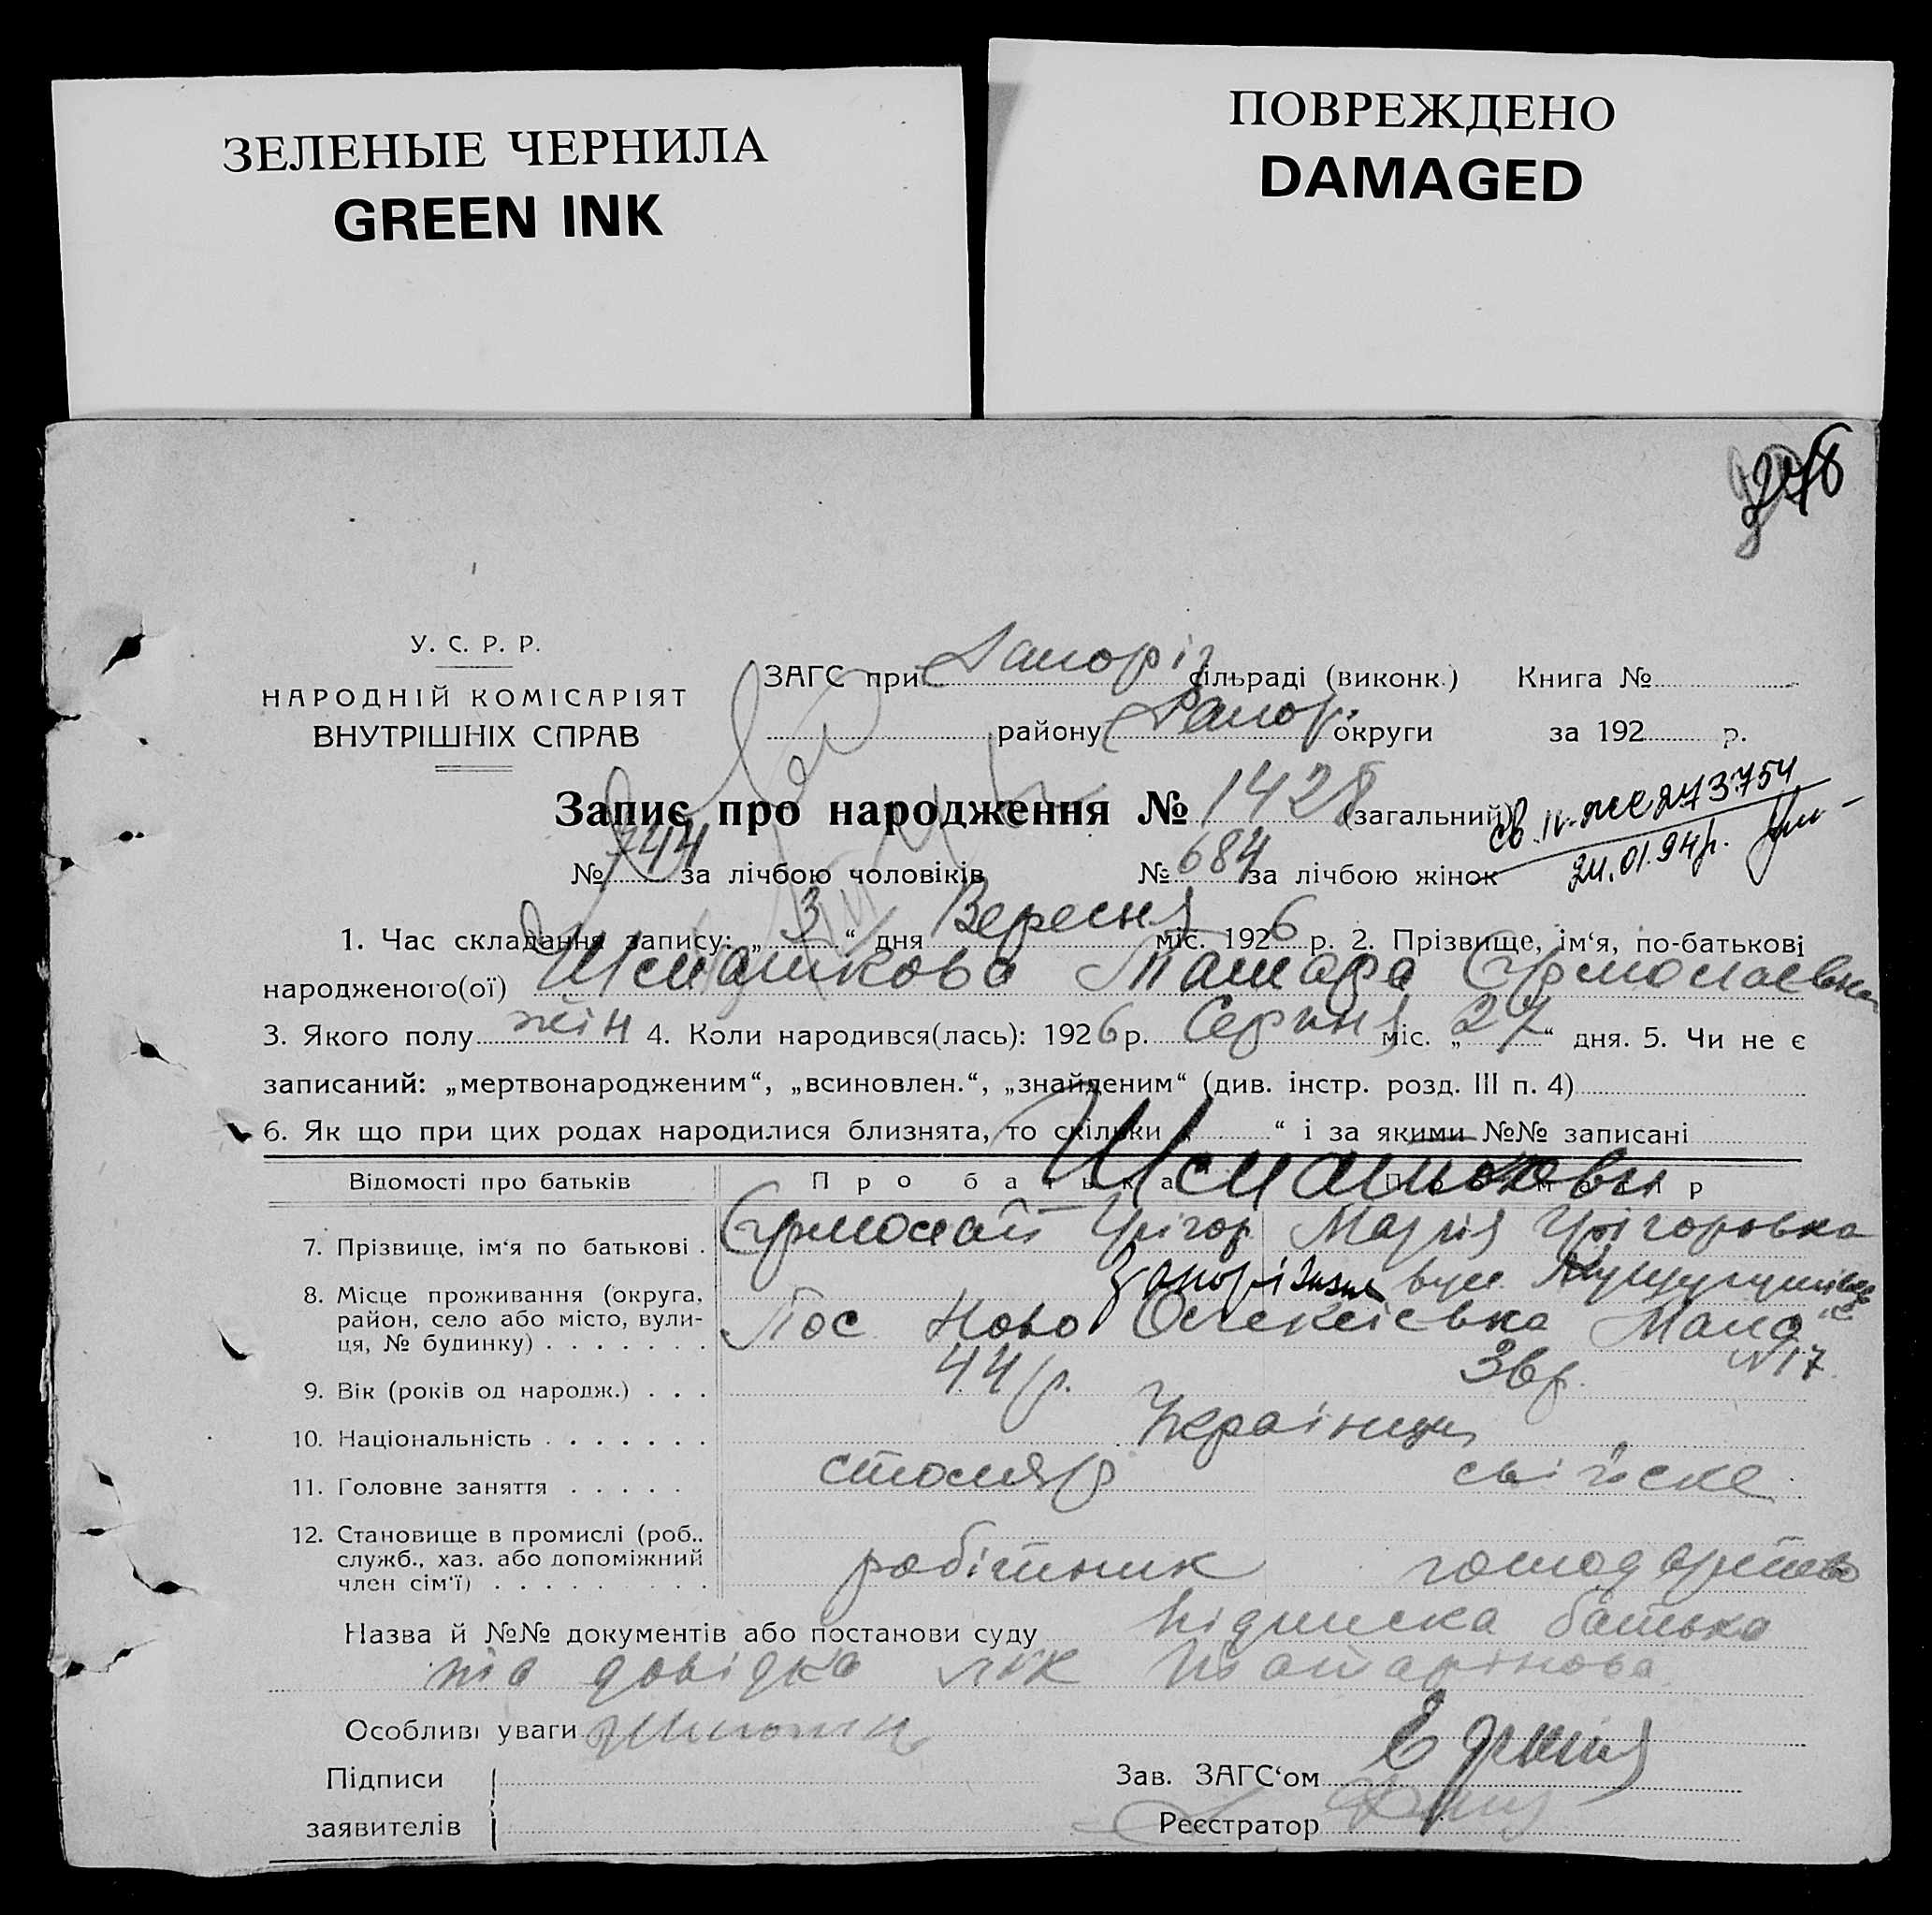 ЗЕЛЕНЫЕ ЧЕРНИЛА
GREEN INK
ПОВРЕЖДЕНО
DAMAGED
У. С. Р. Р.
НАРОДНІЙ КОМІСАРІЯТ
ВНУТРІШНІХ СПРАВ
ЗАГС при Запоріз сільраді (виконк.) Книга №
району Запор. округи за 192 р.
Запис про народження № 1428 (загальний)
24.01.94р.
№ 744 за лічбою чоловіків № 684 за лічбою жінок
1. Час складання запису: „ 3 “ дня Вересня міс. 1926 р. 2. Прізвище, ім‘я, по-батькові
народженого(ої) Тамара Єрмолаевна
3. Якого полу жін 4. Коли народився(лась): 1926 р. Серпня міс. „ 27 “ дня. 5. Чи не є
записаний: „мертвонародженим“, „всиновлен.“, „знайденим“ (див. інстр. розд. III п. 4)
6. Як що при цих родах народилися близнята, то скільки „ “ і за якими №№ записані
Відомості про батьків Про батька Про матір
7. Прізвище, ім‘я по батькові . Єрмолай Грігор Марія Грігоровна
8. Місце проживання (округа, Запоріжжя вул.
район, село або місто, вули- Пос Ново Олексієвка Мала
ця, № будинку) . . . . . . . №17
9. Вік (років од народж.) . . . 44 р. 36 р.
10. Національність . . . . . . . Українци
11. Головне заняття . . . . . столяр свійске
12. Становище в промислі (роб.,
служб., хаз. або допоміжний робітник господарство
член сім‘ї) . . . . . . . . .
Назва й №№ документів або постанови суду підписка батька
та довідка
Особливі уваги
Підписи Зав. ЗАГС‘ом
заявителів Реєстратор